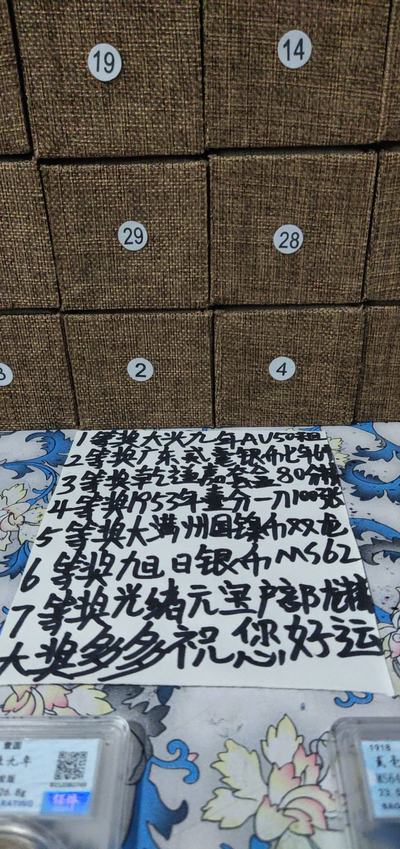 19
14
29
28
2
4
1等奖大头九年AU50粗
2等奖广东贰毫银币七年64
3等奖乾隆
80分
4等奖1953年壹分一刀100张
5等奖大满州国镍币双龙
6等奖旭日银币MS62
7等奖光绪元宝户部
大奖多多祝您好运
元年
26.8g
RATING
1918
MS64